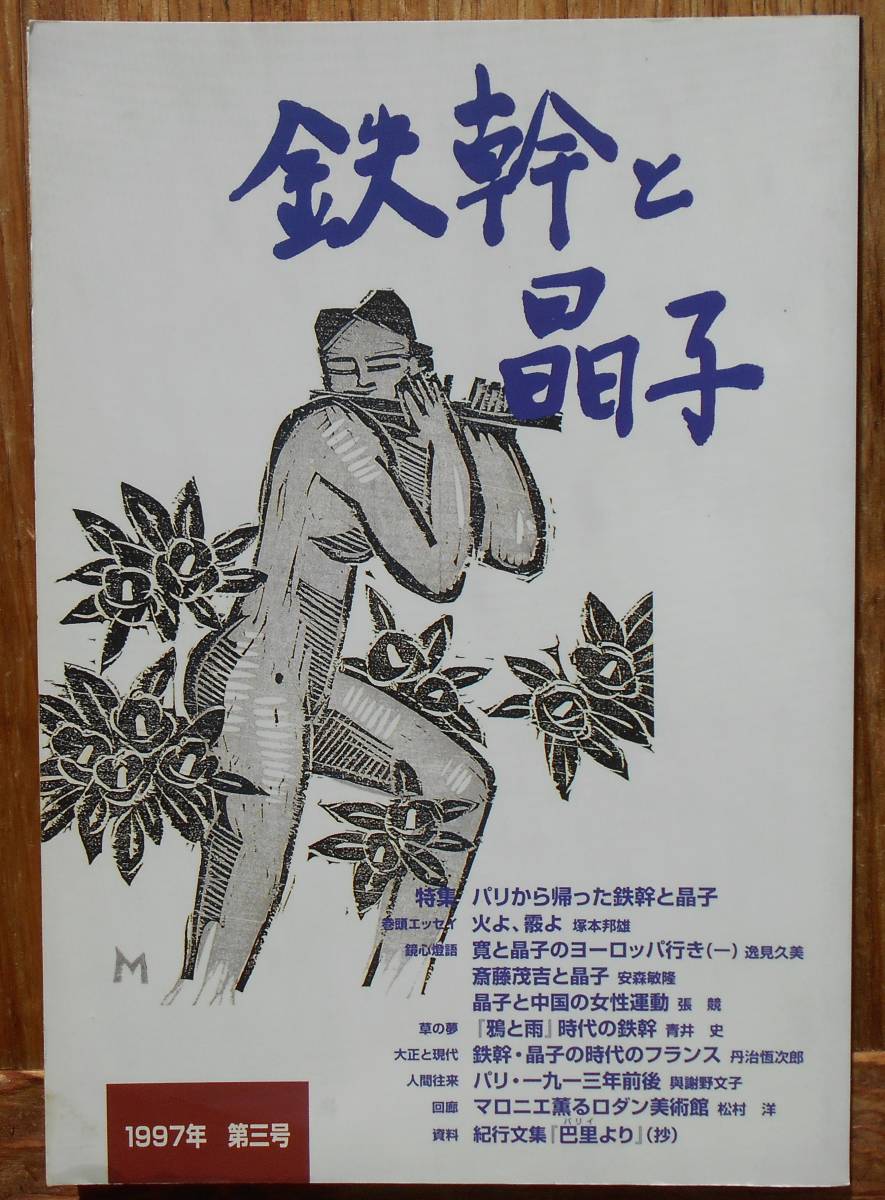 鉄幹と
晶子
特集 パリから帰った鉄幹と晶子
巻頭エッセイ 火よ、霰よ 塚本邦雄
鏡心燈語 寛と晶子のヨーロッパ行き(一) 逸見久美
斎藤茂吉と晶子 安森敏隆
晶子と中国の女性運動 張 競
草の夢 『鴉と雨』時代の鉄幹 青井 史
大正と現代 鉄幹・晶子の時代のフランス 丹治恆次郎
人間往来 パリ・一九一三年前後 與謝野文子
回廊 マロニエ薫るロダン美術館 松村 洋
資料 紀行文集『巴里より』(抄)
パリイ
M
1997年 第三号